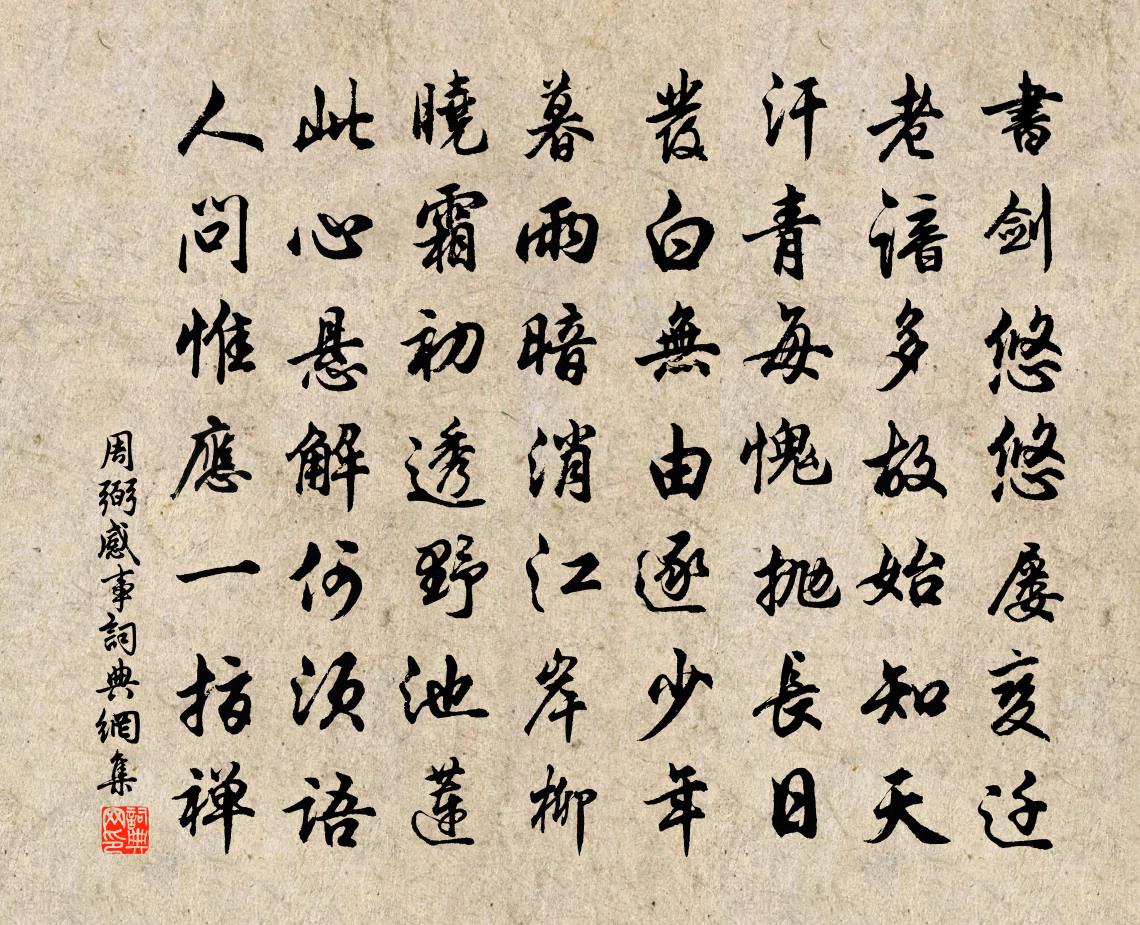 書劍悠悠屡变迁
老諳多故始知天
汗青每愧抛長日
發白無由逐少年
暮雨暗消江岸柳
曉霜初透野池蓮
此心悬解何須語
人問惟應一指禅
周弼感事詞典網集
詞典网印